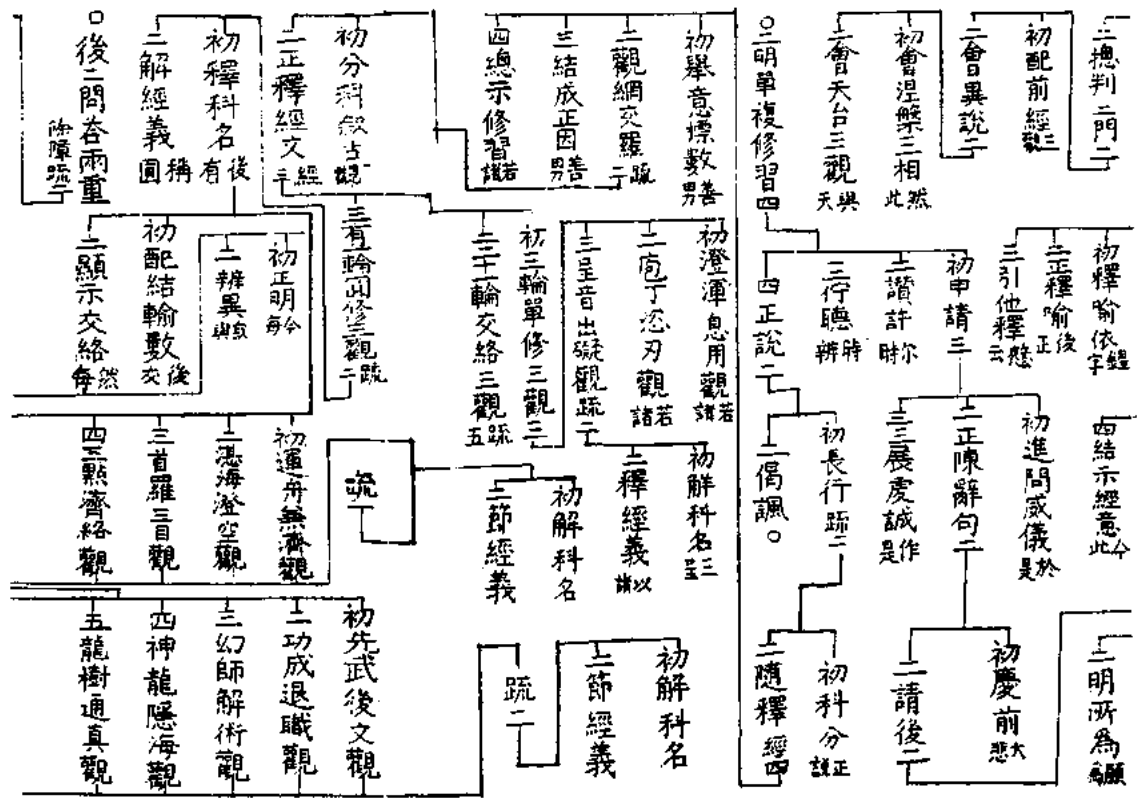 二總判二門二
初配前經三觀
二會異說二
初會涅槃三相然此
二會天台三觀與天
○二明單複修習四
初舉意標數善男
二觀網交羅疏二
三結成正因善男
四總示修習若諸
初分科敘古觀
二正釋經文經三
初釋科名後有
二解經義稱圓
○後二問荅兩重除障疏二
初釋喻依鏗字
二正釋喻後正
三引他釋懸云
初申請三
二讚許尔時
三佇聽時辨
四正說二
初澄渾息用觀若諸
二庖丁恣刃觀若諸
三呈音出礙觀疏二
初三輪單修三觀三
二二十一輪交絡三觀疏五
三有一輪圓修三觀疏二
初正明今每
二辨異與
初配結輪數後交
二顯示交絡然每
四結示經意今此
初進問威儀於是
二正陳辭句二
三三展虔誠作是
初長行疏二
二偈諷○
初解科名三呈
二釋經義以諸
初解科名
二節經義
疏二
初運舟兼濟觀
二湛海澄空觀
三首羅三目觀
四三點齊絡觀
二明所為願
初慶前大悲
二請後二
初科分正謹
二隨釋經四
初解科名
二節經義
疏二
初先武後文觀
二功成退職觀
三幻師解術觀
四神龍隱海觀
五龍樹通真觀